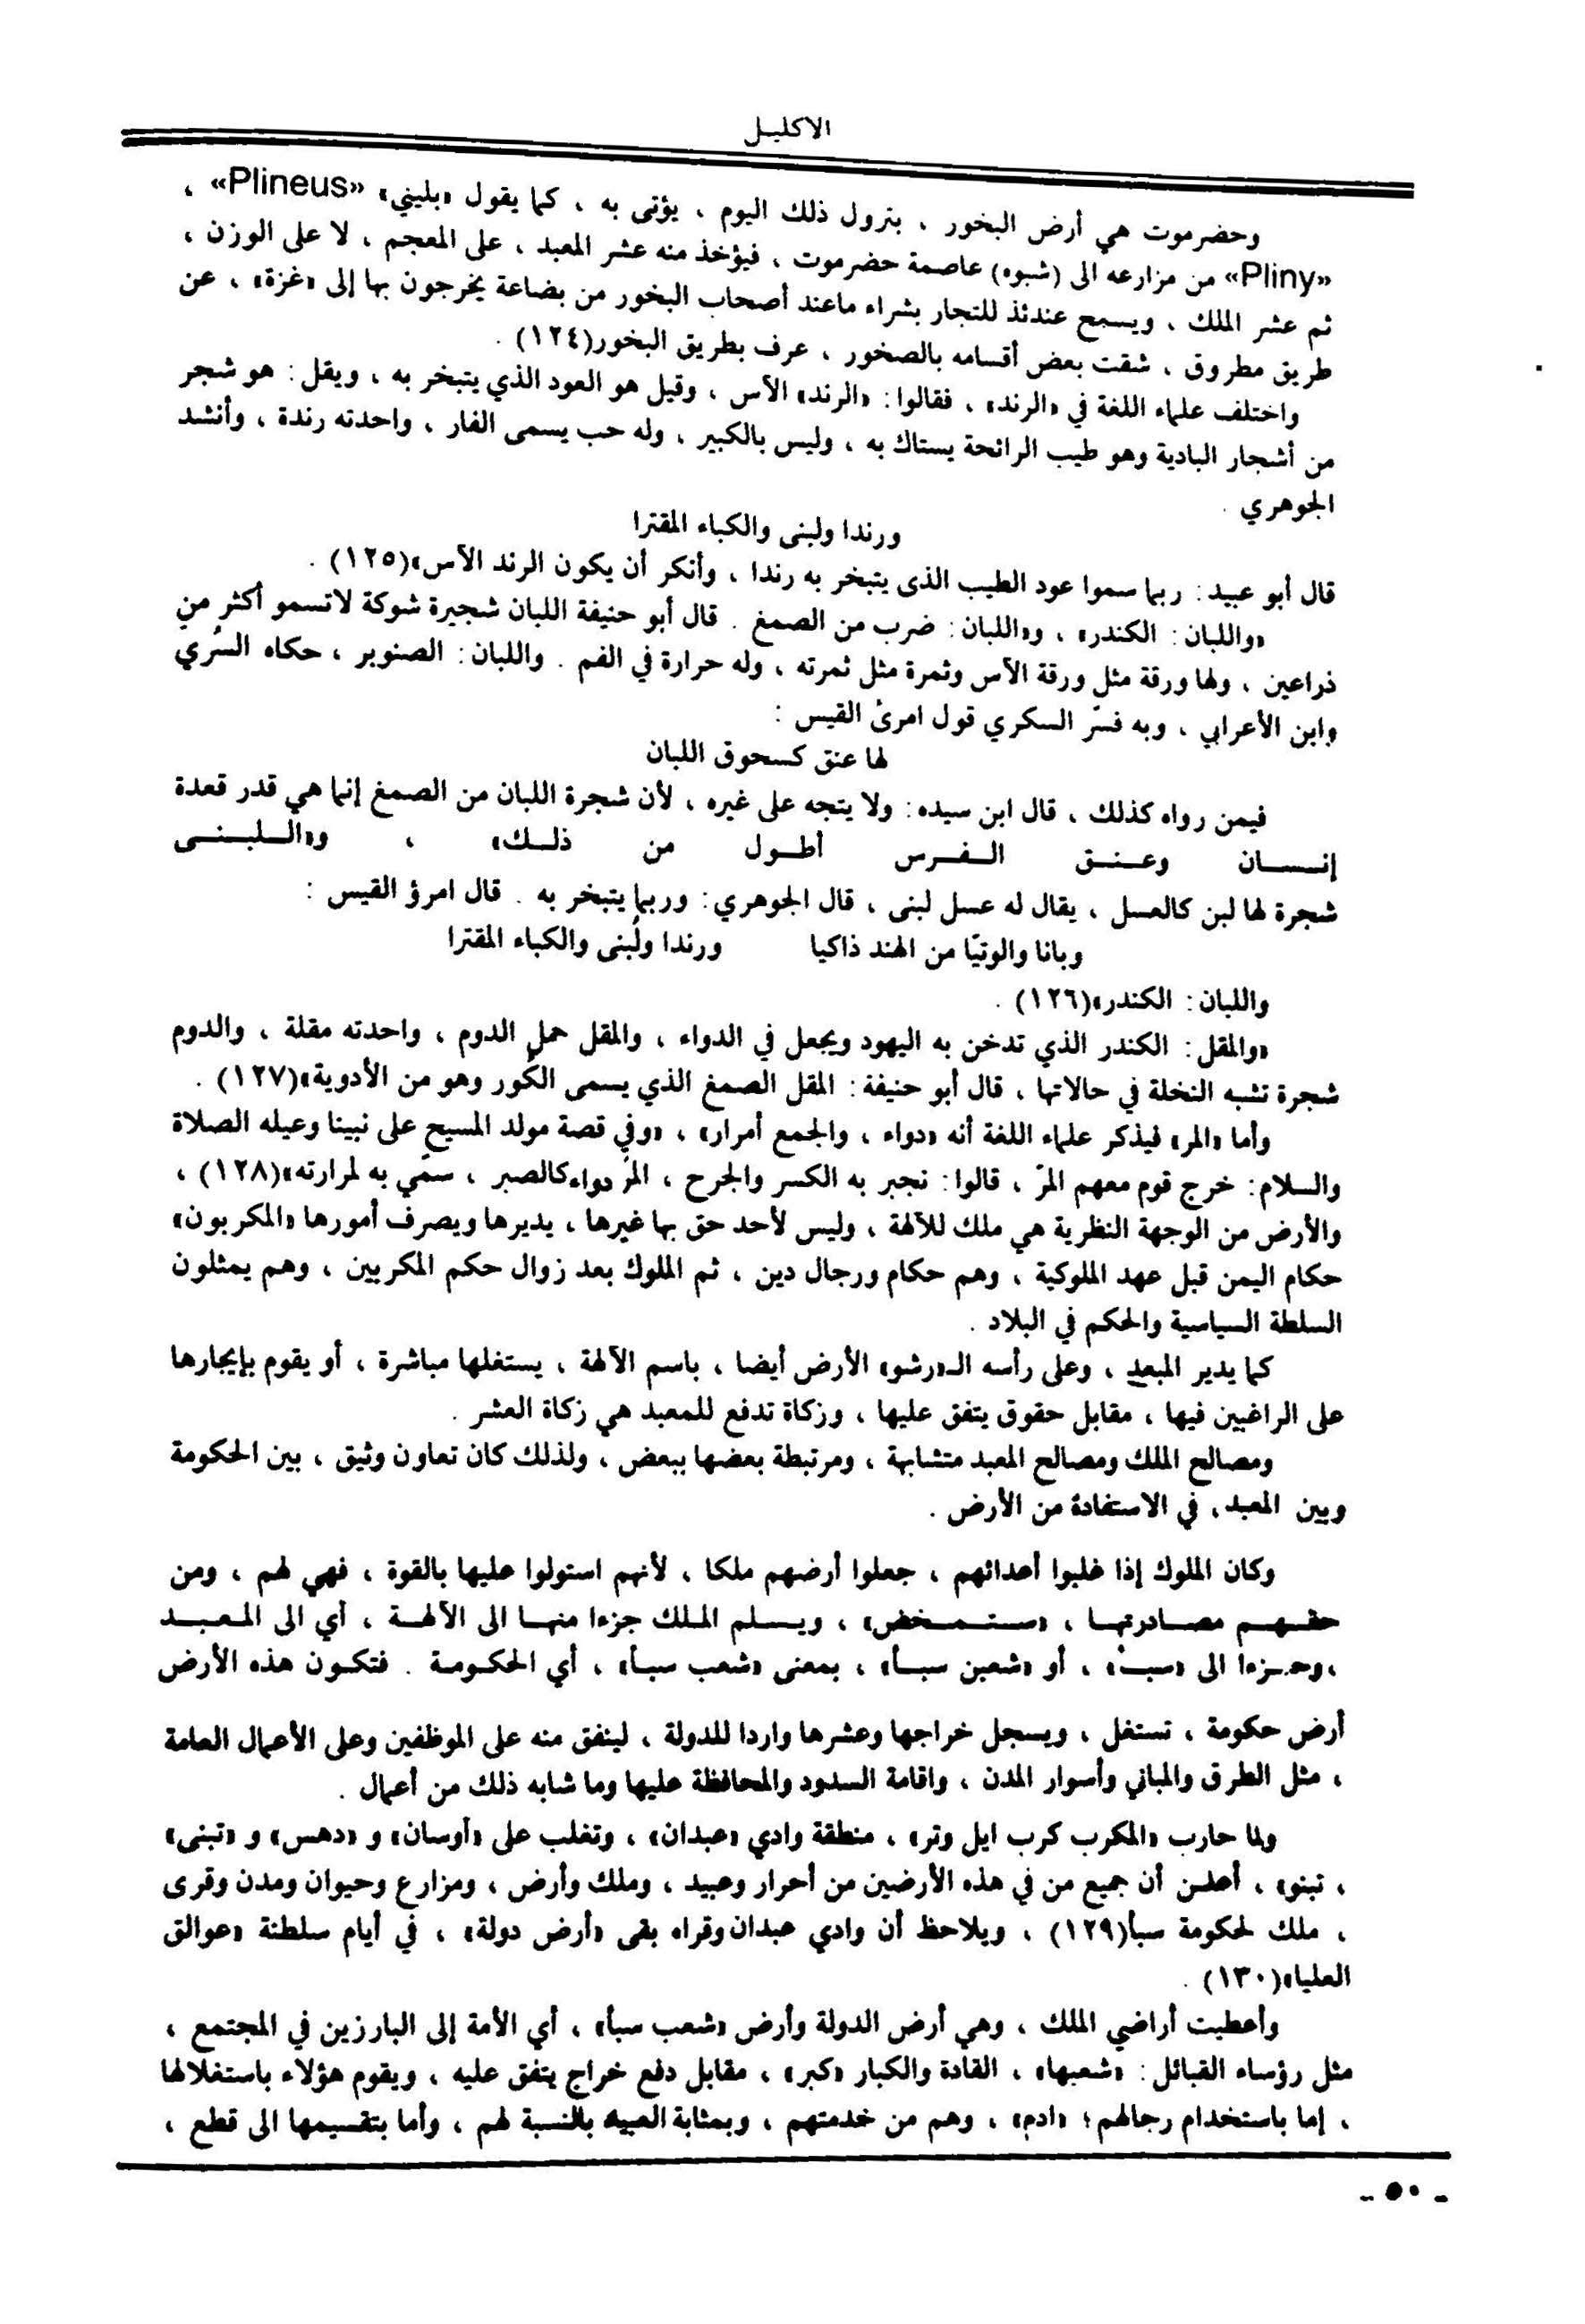 الاكليل
وحضرموت هي أرض البخور ، بترول ذلك اليوم ، يؤتى به ، كما يقول «بليني» «Plineus» ،
«Pliny» من مزارعه الى (شبوه) عاصمة حضرموت ، فيؤخذ منه عشر المعبد ، على المعجم ، لا على الوزن ،
ثم عشر الملك ، ويسمح عندئذ للتجار بشراء ماعند أصحاب البخور من بضاعة يخرجون بها إلى «غزة» ، عن
طريق مطروق ، شقت بعض أقسامه بالصخور ، عرف بطريق البخور(١٢٤) .
واختلف علماء اللغة في «الرند» ، فقالوا : «الرند» الآس ، وقيل هو العود الذي يتبخر به ، ويقل : هو شجر
من أشجار البادية وهو طيب الرائحة يستاك به ، وليس بالكبير ، وله حب يسمى الغار ، واحدته رندة ، وأنشد
الجوهري .
ورندا ولبنى والكباء المقترا
قال أبو عبيد : ربما سموا عود الطيب الذى يتبخر به رندا ، وأنكر أن يكون الرند الآس»(١٢٥) .
«واللبان : الكندر» ، و«اللبان : ضرب من الصمغ . قال أبو حنيفة اللبان شجيرة شوكة لاتسمو أكثر من
ذراعين ، ولها ورقة مثل ورقة الآس وثمرة مثل ثمرته ، وله حرارة في الفم . واللبان : الصنوبر ، حكاه السُري
وابن الأعرابي ، وبه فسّر السكري قول امرئ القيس :
لها عنق كسحوق اللبان
فيمن رواه كذلك ، قال ابن سيده : ولا يتجه على غيره ، لأن شجرة اللبان من الصمغ إنما هي قدر قعدة
إنسان وعنق الفرس أطول من ذلك» ، و«اللبنى
شجرة لها لبن كالعسل ، يقال له عسل لبنى ، قال الجوهري : وربما يتبخر به . قال امرؤ القيس :
وبانا والوتيّا من الهند ذاكيا ورندا ولُبنى والكباء المقترا
واللبان : الكندر»(١٢٦) .
«والمقل : الكندر الذي تدخن به اليهود ويجعل في الدواء ، والمقل حمل الدوم ، واحدته مقلة ، والدوم
شجرة تشبه النخلة في حالاتها ، قال أبو حنيفة : المقل الصمغ الذي يسمى الكُور وهو من الأدوية»(١٢٧) .
وأما «المر» فيذكر علماء اللغة أنه «دواء ، والجمع أمرار» ، «وفي قصة مولد المسيح على نبينا وعيله الصلاة
والسلام : خرج قوم معهم المرّ ، قالوا : نجبر به الكسر والجرح ، المرّ دواء كالصبر ، سمّي به لمرارته»(١٢٨) ،
والأرض من الوجهة النظرية هي ملك للآلهة ، وليس لأحد حق بها غيرها ، يديرها ويصرف أمورها «المكربون»
حكام اليمن قبل عهد الملوكية ، وهم حكام ورجال دين ، ثم الملوك بعد زوال حكم المكربين ، وهم يمثلون
السلطة السياسية والحكم في البلاد .
كما يدير المعبد ، وعلى رأسه الـ«رشو» الأرض أيضا ، باسم الآلهة ، يستغلها مباشرة ، أو يقوم بإيجارها
على الراغبين فيها ، مقابل حقوق يتفق عليها ، وزكاة تدفع للمعبد هي زكاة العشر .
ومصالح الملك ومصالح المعبد متشابهة ، ومرتبطة بعضها ببعض ، ولذلك كان تعاون وثيق ، بين الحكومة
وبين المعبد ، في الاستفادة من الأرض .
وكان الملوك إذا غلبوا أعدائهم ، جعلوا أرضهم ملكا ، لأنهم استولوا عليها بالقوة ، فهي لهم ، ومن
حقهم مصادرتها ، «ستمخض» ، ويسلم الملك جزءا منها الى الآلهة ، أي الى المعبد
، وجزءا الى «سبأ» ، أو «شعبن سبأ» ، بمعنى «شعب سبأ» ، أي الحكومة . فتكون هذه الأرض
أرض حكومة ، تستغل ، ويسجل خراجها وعشرها واردا للدولة ، لينفق منه على الموظفين وعلى الأعمال العامة
، مثل الطرق والمباني وأسوار المدن ، واقامة السدود والمحافظة عليها وما شابه ذلك من أعمال .
ولما حارب «المكرب كرب ايل وتر» ، منطقة وادي «عبدان» ، وتغلب على «أوسان» و «دهس» و «تبنى»
، تبنو» ، أعلن أن جميع من في هذه الأرضين من أحرار وعبيد ، وملك وأرض ، ومزارع وحيوان ومدن وقرى
، ملك لحكومة سبأ(١٢٩) ، ويلاحظ أن وادي عبدان وقراه بقى «أرض دولة» ، في أيام سلطنة «عوالق
العليا»(١٣٠) .
وأعطيت أراضي الملك ، وهي أرض الدولة وأرض «شعب سبأ» ، أي الأمة إلى البارزين في المجتمع ،
مثل رؤساء القبائل : «شعبها» ، القادة والكبار «كبر» ، مقابل دفع خراج يتفق عليه ، ويقوم هؤلاء باستغلالها
، إما باستخدام رجالهم ؛ «ادم» ، وهم من خدمتهم ، وبمثابة العبيد بالنسبة لهم ، وأما بتقسيمها الى قطع ،
- ٥٠ -